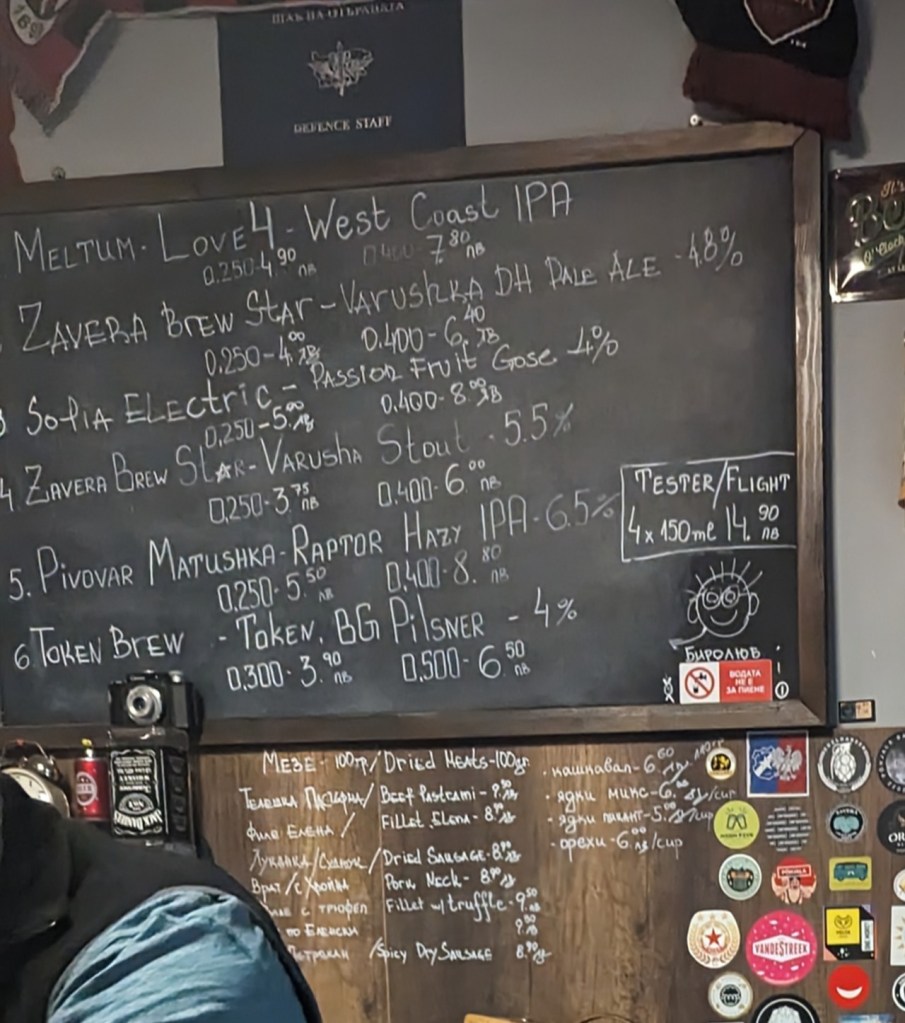 ЩАБ НА ОТБРАНАТА
DEFENCE STAFF
MELTUM. LOVE4 - WEST COAST IPA
0.250-4.90 лв 0.400-7.80 лв
ZAVERA BREW STAR - VARUSHKA DH PALE ALE - 4.8%
0.250-4.00 лв 0.400-6.40 лв
3 SOFIA ELECTRIC - PASSION FRUIT GOSE 4%
0.250-5.00 лв 0.400-8.00 лв
4 ZAVERA BREW STAR - VARUSHA STOUT - 5.5%
0,250-3.75 лв 0,400-6.00 лв
TESTER/FLIGHT
4 x 150ml 14.90 лв
5. PIVOVAR MATUSHKA - RAPTOR HAZY IPA - 6.5%
0.250-5.50 лв 0,400-8.80 лв
6 TOKEN BREW - TOKEN. BG PILSNER - 4%
0,300-3.90 лв 0,500-6.50 лв
БИРОЛЮБ
ВОДАТА
НЕ Е
ЗА ПИЕНЕ
МЕЗЕ - 100гр/DRIED MEATS-100gr
ТЕЛЕШКА / BEEF PASTRAMI -
ФИЛЕ ЕЛЕНА / FILLET ELENA -
ЛУКАНКА/СУДЖУК / DRIED SAUSAGE -
ВРАТ / PORK NECK -
С ТРЮФЕЛ FILLET w/truffle -
/SPICY DRY SAUSAGE
кашкавал -
ядки микс - /cup
ядки пикант - /cup
орехи - 6.00 лв/cup
VANDESTREEK